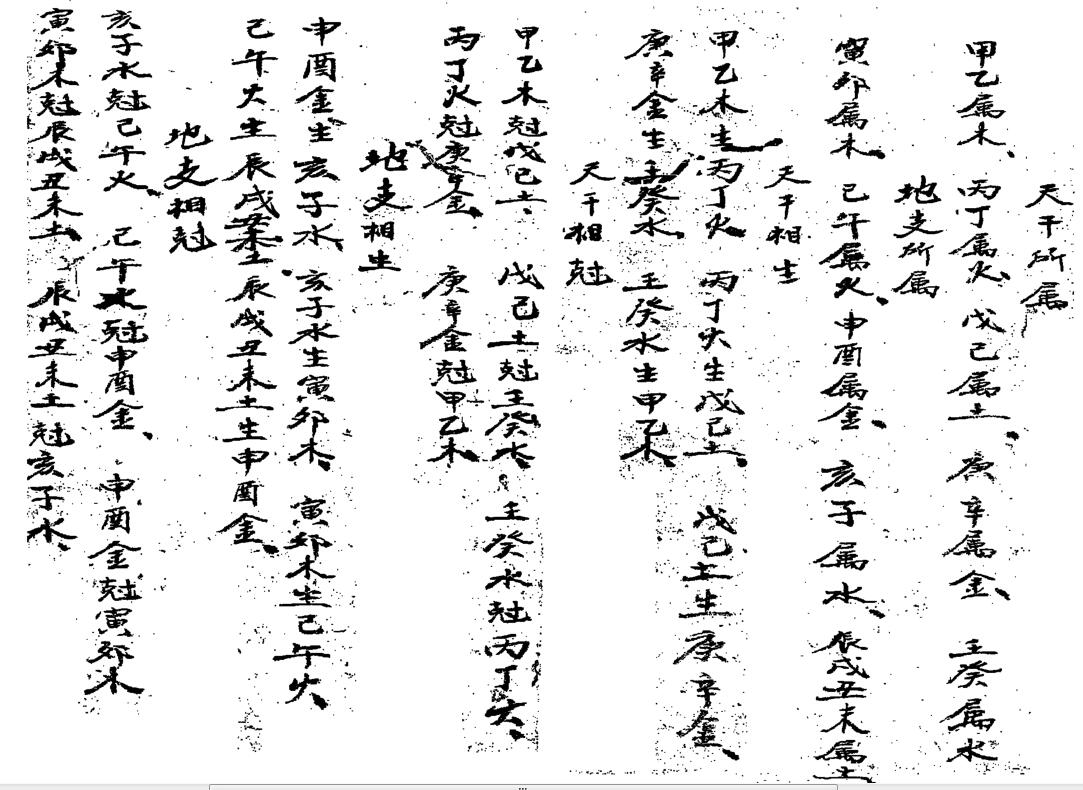 天干所属
甲乙属木、丙丁属火、戊己属土、庚辛属金、壬癸属水
地支所属
寅卯属木、己午属火、申酉属金、亥子属水、辰戌丑未属土
天干相生
甲乙木生丙丁火、丙丁火生戊己土、戊己土生庚辛金、
庚辛金生壬癸水、壬癸水生甲乙木、
天干相尅
甲乙木尅戊己土 戊己土尅壬癸水、壬癸水尅丙丁火、
丙丁火尅庚辛金、庚辛金尅甲乙木、
地支相生
申酉金生亥子水、亥子水生寅卯木、寅卯木生己午火、
己午火生辰戌丑未土、辰戌丑未土生申酉金、
地支相尅
亥子水尅己午火、己午火尅申酉金、申酉金尅寅卯木
寅卯木尅辰戌丑未土、辰戌丑未土尅亥子水、